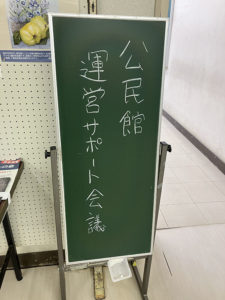 公民館
運営サポート会議